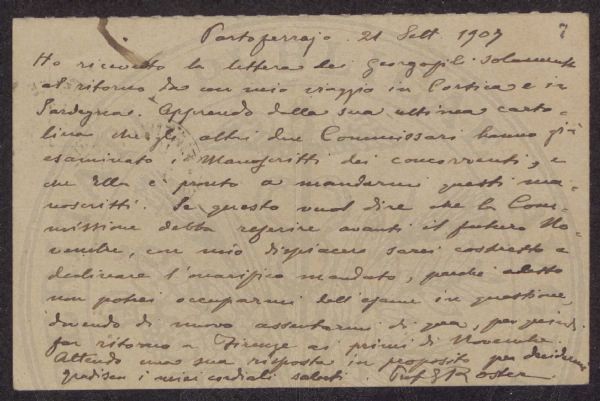 Portoferrajo. 21 Sett. 1907 7
Ho ricevuto la lettera dei Georgofili solamente
al ritorno da un mio viaggio in Corsica e in
Sardegna. Apprendo dalla sua ultima carto-
lina che gli altri due Commissari hanno già
esaminato i Manoscritti dei concorrenti, e
che Ella è pronto a mandarmi questi ma-
noscritti. Se questo vuol dire che la Com-
missione debba referire avanti il futuro No-
vembre, con mio dispiacere sarei costretto a
declinare l'onorifico mandato, perchè adesso
non potrei occuparmi dell'esame in questione,
dovendo di nuovo assentarmi di qua, per quindi
far ritorno a Firenze ai primi di Novembre.
Attendo una sua risposta in proposito per decidermi
Gradisca i miei cordiali saluti. Prof G Roster